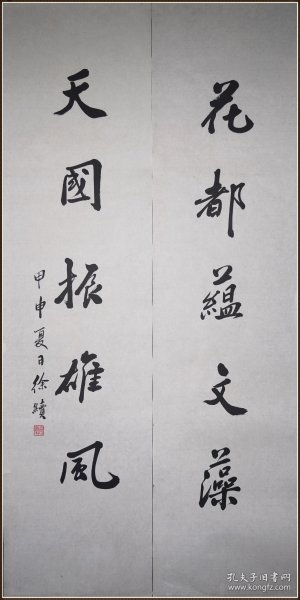 花都蕴文藻
天國振雄風
甲申夏日徐續
孔夫子旧书网